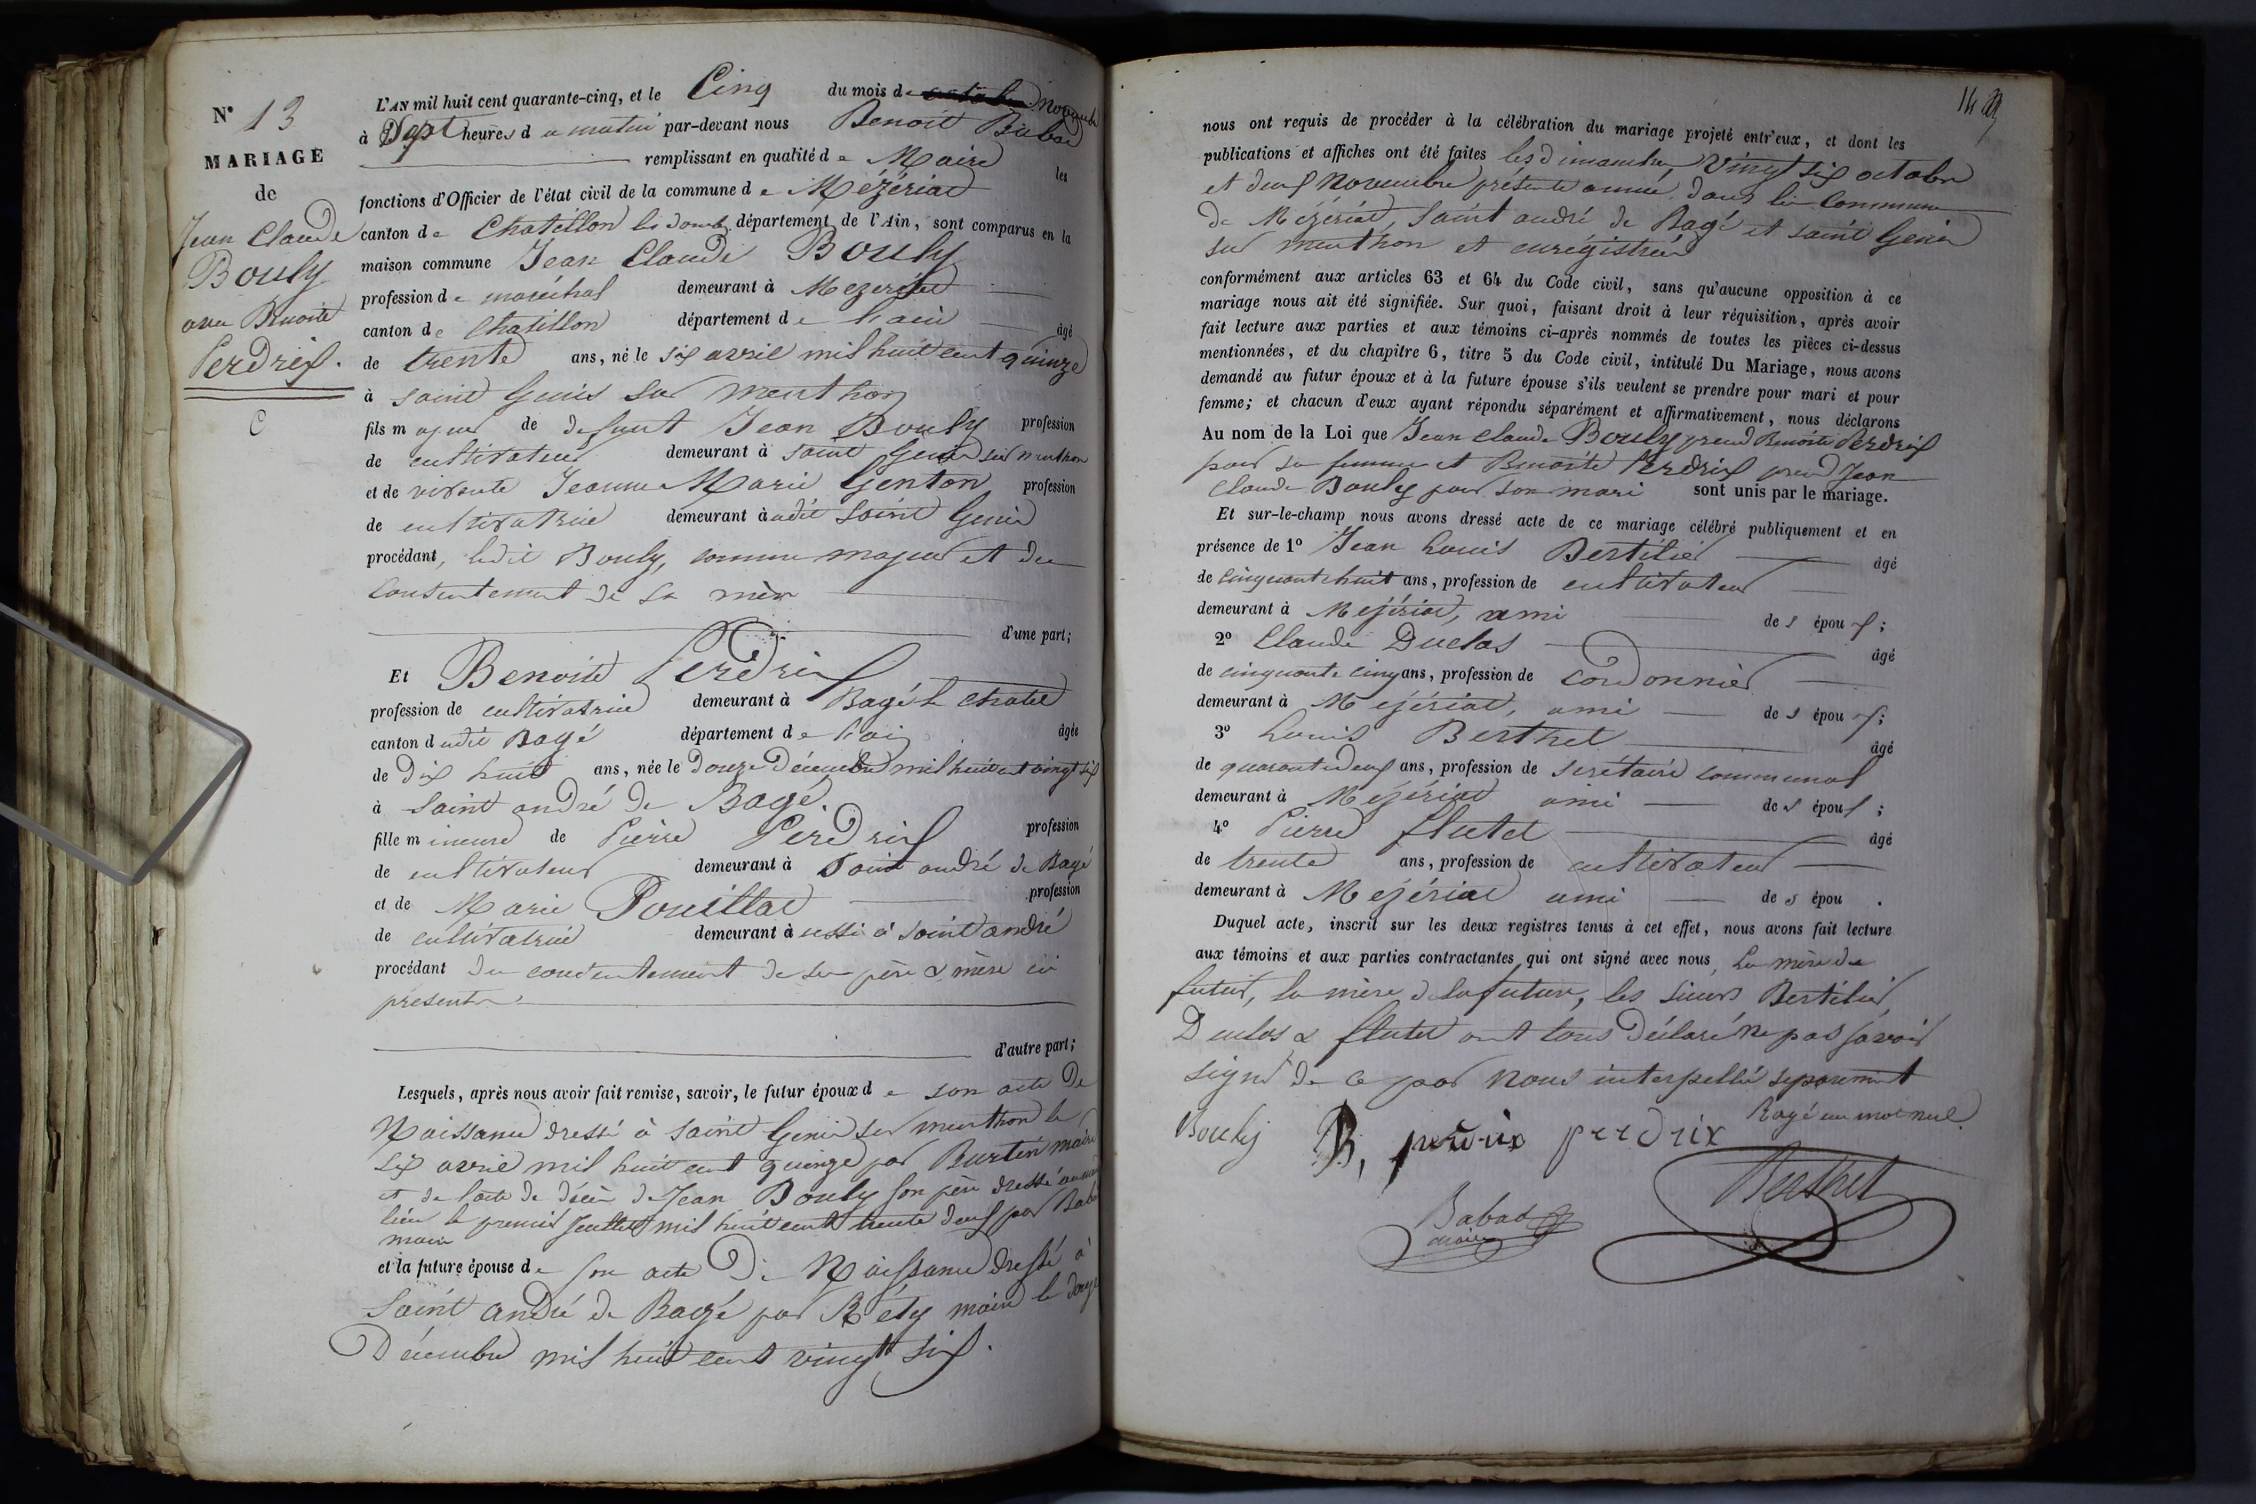 N° 13
MARIAGE
de
Jean Claude
Bouly
avec Benoite
Perdrix.
C
L'AN mil huit cent quarante-cinq, et le Cinq du mois de octobre Novembre
à Sept heures du matin par-devant nous Benoit Babad
remplissant en qualité de Maire les
fonctions d'Officier de l'état civil de la commune de Mézériat
canton de Chatillon les domb. département de l'Ain, sont comparus en la
maison commune Jean Claude Bouly
profession de maréchal demeurant à Mezeriat
canton de Chatillon département de l'ain âgé
de trente ans, né le six avril mil huit cent quinze
à saint Genis sur menthon
fils majeur de defunt Jean Bouly profession
de cultivateur demeurant à saint Genis sur menthon
et de vivante Jeanne Marie Genton profession
de cultivatrice demeurant à udit saint Genis
procédant, ledit Bouly, comme majeur et du
consentement de sa mère
d'une part;
Et Benoite Perdrix
profession de cultivatrice demeurant à Bagé le chatel
canton dudit Bagé département de l'ain âgée
de dix huit ans, née le douze Décembre mil huit cent vingt six
à saint andré de Bagé.
fille mineure de Pierre Perdrix profession
de cultivateur demeurant à Saint andré de Bagé
et de Marie Pouillat profession
de cultivatrice demeurant à ussi à saint andré
procédant du consentement de ses père & mère ici
presents.
d'autre part;
Lesquels, après nous avoir fait remise, savoir, le futur époux de son acte de
Naissance dressé à saint Genis sur menthon le
six avril mil huit cent quinze par Burtin maire
et de l'acte de décès de Jean Bouly son père dressé au même
lieu le premier Juillet mil huit cent trente deux par
maire
et la future épouse de son acte de Naissance dressé à
Saint andré de Bagé par Réty maire le douze
Décembre mil huit cent vingt six.
14
nous ont requis de procéder à la célébration du mariage projeté entr'eux, et dont les
publications et affiches ont été faites les dimanches, vingt six octobre
et deux Novembre présente année, dans les Communes
de Mézériat, saint andré de Bagé et saint Genis
sur menthon et enregistrées
conformément aux articles 63 et 64 du Code civil, sans qu'aucune opposition à ce
mariage nous ait été signifiée. Sur quoi, faisant droit à leur réquisition, après avoir
fait lecture aux parties et aux témoins ci-après nommés de toutes les pièces ci-dessus
mentionnées, et du chapitre 6, titre 5 du Code civil, intitulé Du Mariage, nous avons
demandé au futur époux et à la future épouse s'ils veulent se prendre pour mari et pour
femme; et chacun d'eux ayant répondu séparément et affirmativement, nous déclarons
Au nom de la Loi que Jean claude Bouly prend Benoite Perdrix
pour sa femme et Benoite Perdrix prend Jean
Claude Bouly pour son mari sont unis par le mariage.
Et sur-le-champ nous avons dressé acte de ce mariage célébré publiquement et en
présence de 1° Jean Louis Bertilier âgé
de cinquante huit ans, profession de cultivateur
demeurant à Mezériat, ami des époux;
2° Claude Duclos âgé
de cinquante cinq ans, profession de cordonnier
demeurant à Mezériat, ami des époux;
3° Louis Berthet âgé
de quarante deux ans, profession de secrétaire communal
demeurant à Mezériat ami des époux;
4° Pierre flutet âgé
de trente ans, profession de cultivateur
demeurant à Mezériat ami des épou .
Duquel acte, inscrit sur les deux registres tenus à cet effet, nous avons fait lecture
aux témoins et aux parties contractantes qui ont signé avec nous, La mère du
futur, la mère de la future, les sieurs Bertilier,
Duclos & flutet ont tous déclaré ne pas savoir
signer de ce par nous interpellés separement
Rayé un mot nul.
Bouly B, perdrix perdrix
Berthet
Babad
maire